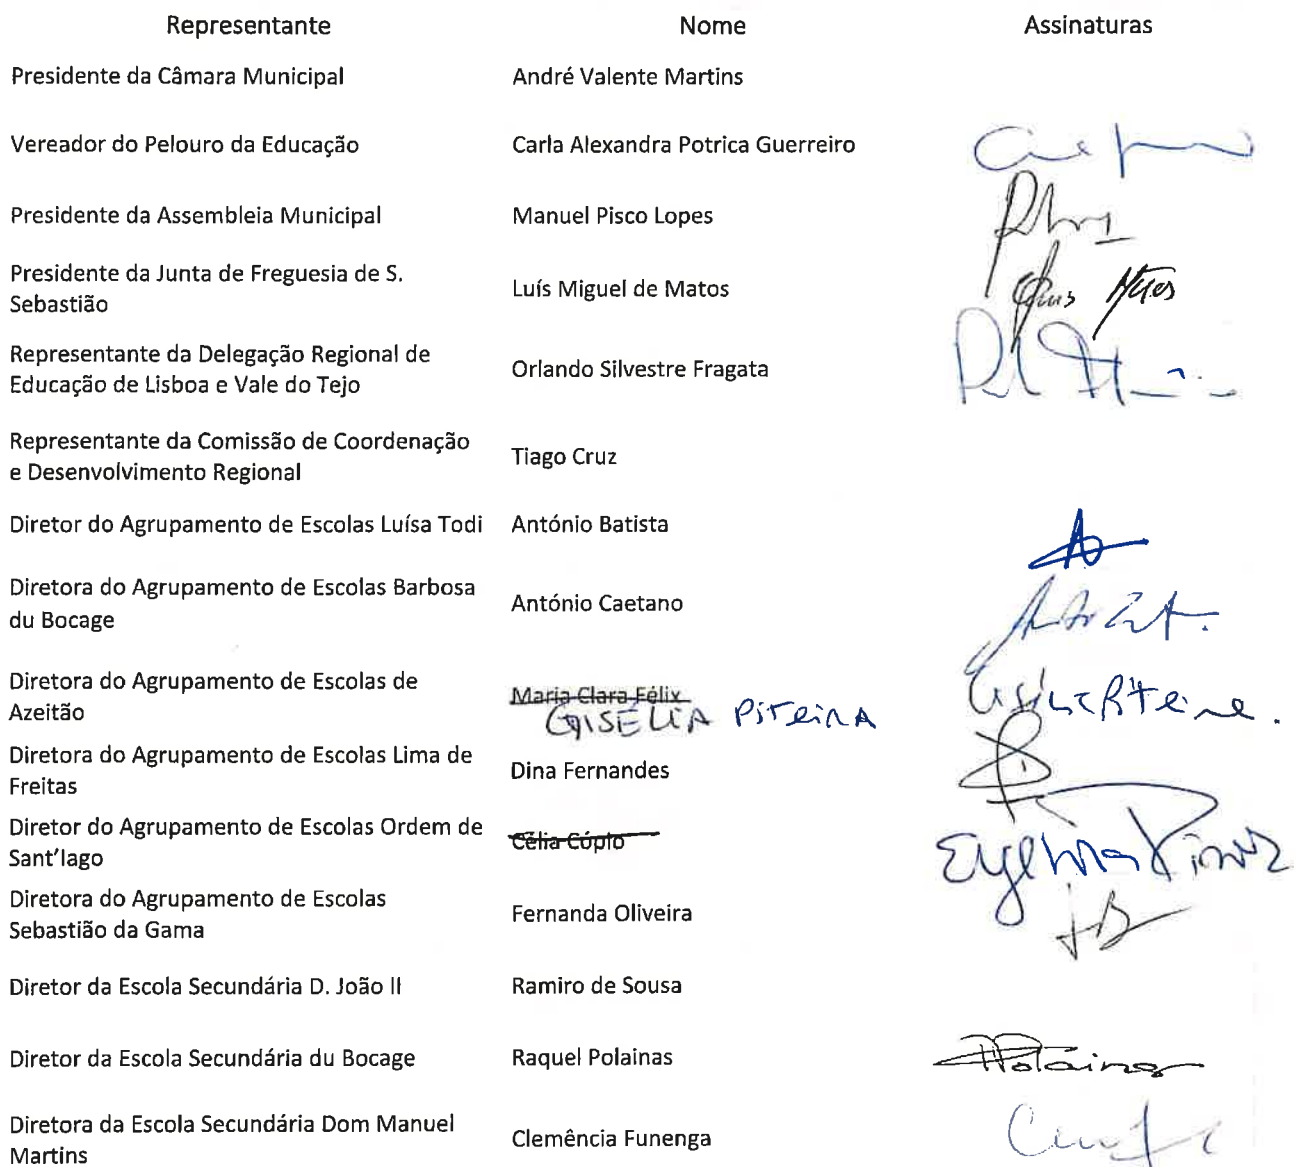 Representante Nome Assinaturas
Presidente da Câmara Municipal André Valente Martins
Vereador do Pelouro da Educação Carla Alexandra Potrica Guerreiro
Presidente da Assembleia Municipal Manuel Pisco Lopes
Presidente da Junta de Freguesia de S.
Sebastião
Luís Miguel de Matos
Representante da Delegação Regional de
Educação de Lisboa e Vale do Tejo
Orlando Silvestre Fragata
Representante da Comissão de Coordenação
e Desenvolvimento Regional
Tiago Cruz
Diretor do Agrupamento de Escolas Luísa Todi António Batista
Diretora do Agrupamento de Escolas Barbosa
du Bocage
António Caetano
Diretora do Agrupamento de Escolas de
Azeitão
Maria Clara Félix
GISÉLIA PITEIRA
Diretora do Agrupamento de Escolas Lima de
Freitas
Dina Fernandes
Diretor do Agrupamento de Escolas Ordem de
Sant'Iago
Célia Cópio
Diretora do Agrupamento de Escolas
Sebastião da Gama
Fernanda Oliveira
Diretor da Escola Secundária D. João II Ramiro de Sousa
Diretor da Escola Secundária du Bocage Raquel Polainas
Polainas
Diretora da Escola Secundária Dom Manuel
Martins
Clemência Funenga